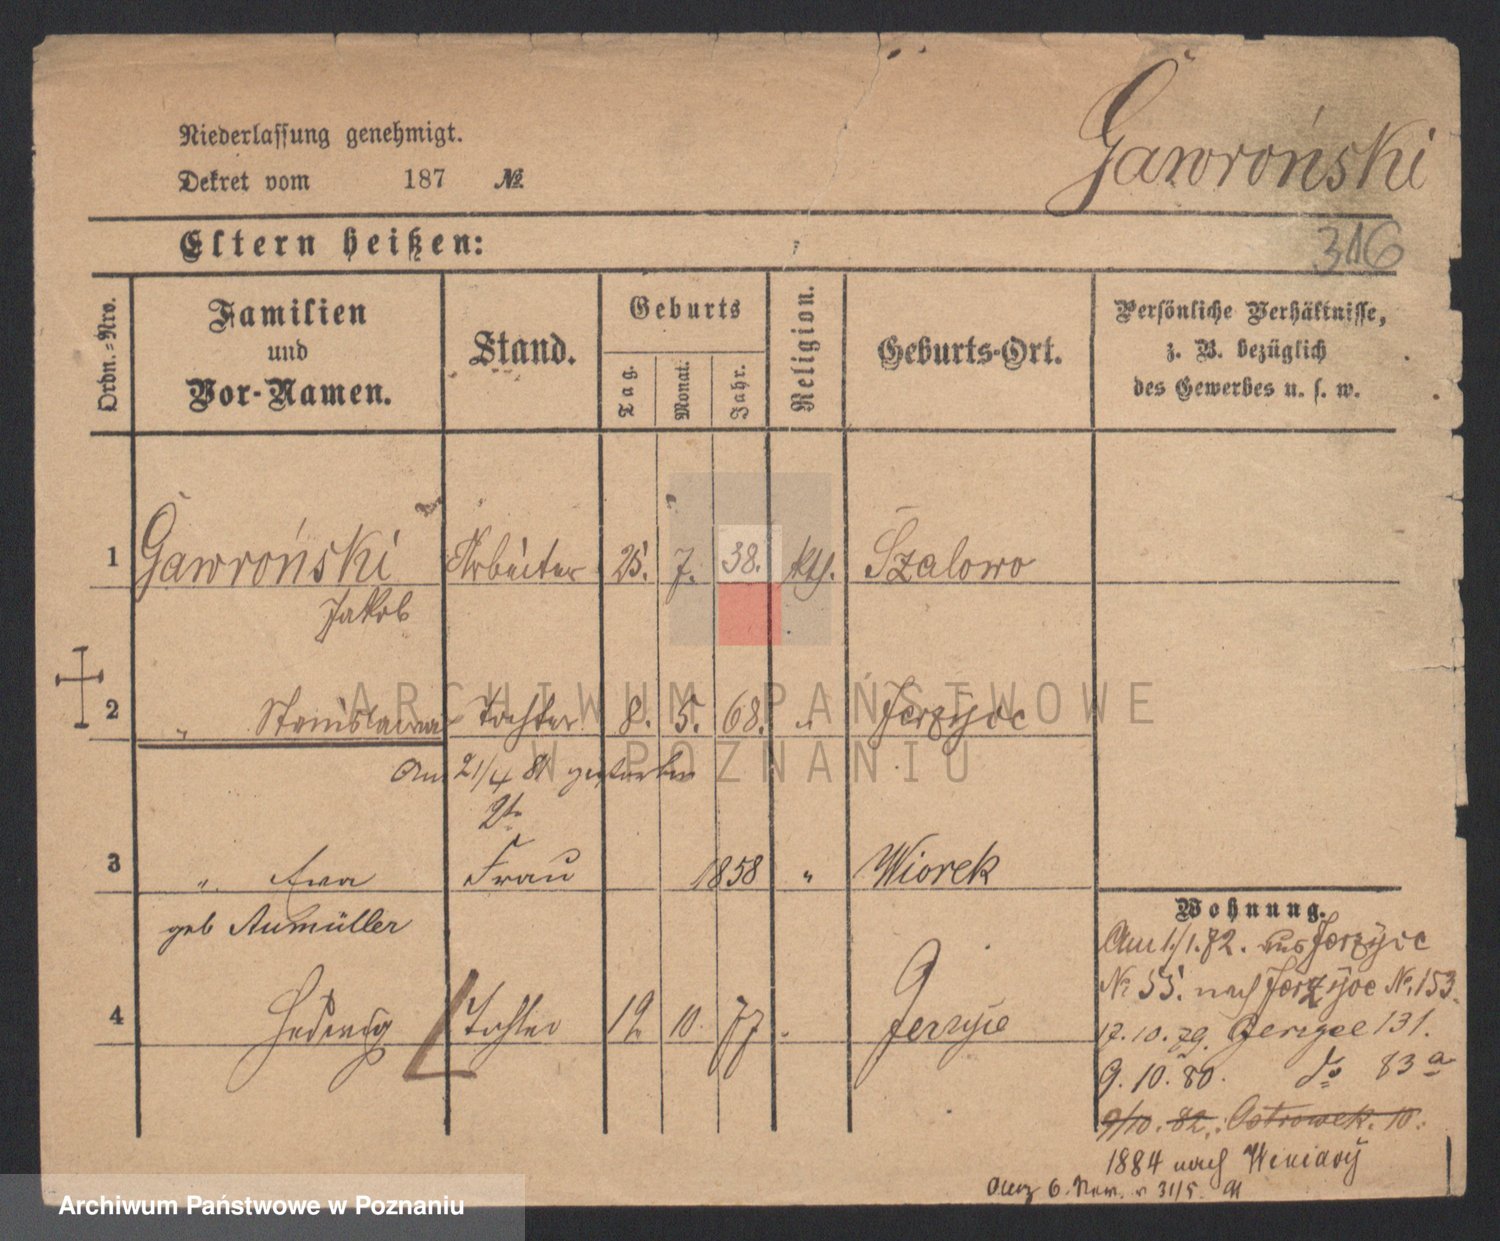 Gawroński
Niederlassung genehmigt.
Dekret vom 187 №
Eltern heißen:
316
Ordn.-Nro.
Familien
und
Vor-Namen.
Stand.
Geburts
Tag.
Monat.
Jahr.
Religion.
Geburts-Ort.
Persönliche Verhältnisse,
z. B. bezüglich
des Gewerbes u. s. w.
1 Gawroński Arbeiter 25. 7. 38. kth. Szalowo
Jakob
2 " Stanislawa Tochter 8. 5. 68. " Jerzyce
Am 21/4 81 gestorben
2te
3 " Ewa Frau 1858 " Wiorek
geb Aumüller
4 Hedwig Tochter 12 10. 77 Jerzyce
Wohnung.
Am 1./1.72. aus Jerzyce
№ 55. nach Jerzyce №. 153.
17.10.79. Jerzyce 131.
9.10.80. do 83 a
9/10.82. Ostrowek. 10.
1884 nach Winiary
6. 31/5.
ARCHIWUM PAŃSTWOWE
W POZNANIU
Archiwum Państwowe w Poznaniu